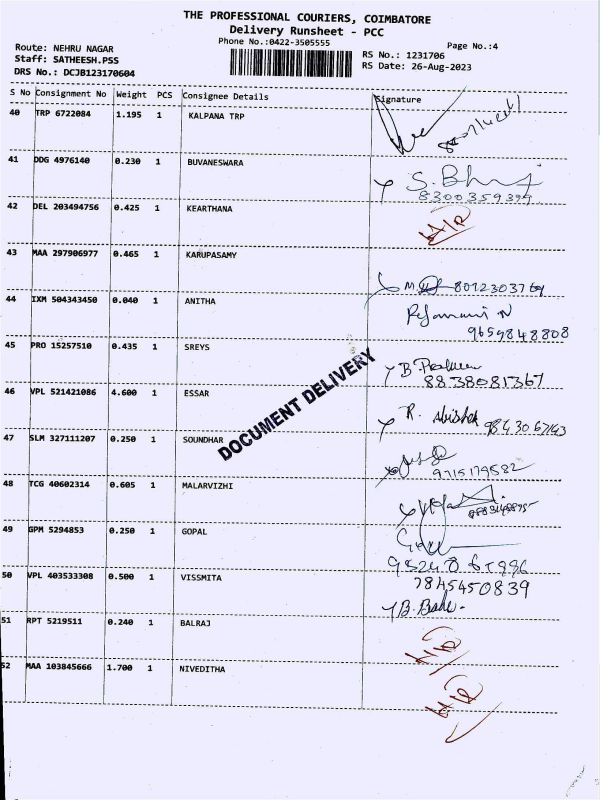 THE PROFESSIONAL COURIERS, COIMBATORE
Delivery Runsheet - PCC
Phone No.:0422-3505555
Page No.:4
Route: NEHRU NAGAR
Staff: SATHEESH.PSS
DRS No.: DCJB123170604
RS No.: 1231706
RS Date: 26-Aug-2023
S No Consignment No Weight PCS Consignee Details Signature
40 TRP 6722084 1.195 1 KALPANA TRP
41 DDG 4976140 0.230 1 BUVANESWARA
S. Bhuvi
8300359399
42 DEL 203494756 0.425 1 KEARTHANA
43 MAA 297906977 0.465 1 KARUPASAMY
8012303769
44 IXM 504343450 0.040 1 ANITHA
9659848808
45 PRO 15257510 0.435 1 SREYS
8838081367
46 VPL 521421086 4.600 1 ESSAR
R. Abishek
47 SLM 327111207 0.250 1 SOUNDHAR
9715179582
48 TCG 40602314 0.605 1 MALARVIZHI
49 GPM 5294853 0.250 1 GOPAL
50 VPL 403533308 0.500 1 VISSMITA
7845450839
51 RPT 5219511 0.240 1 BALRAJ
52 MAA 103845666 1.700 1 NIVEDITHA
DOCUMENT DELIVERY